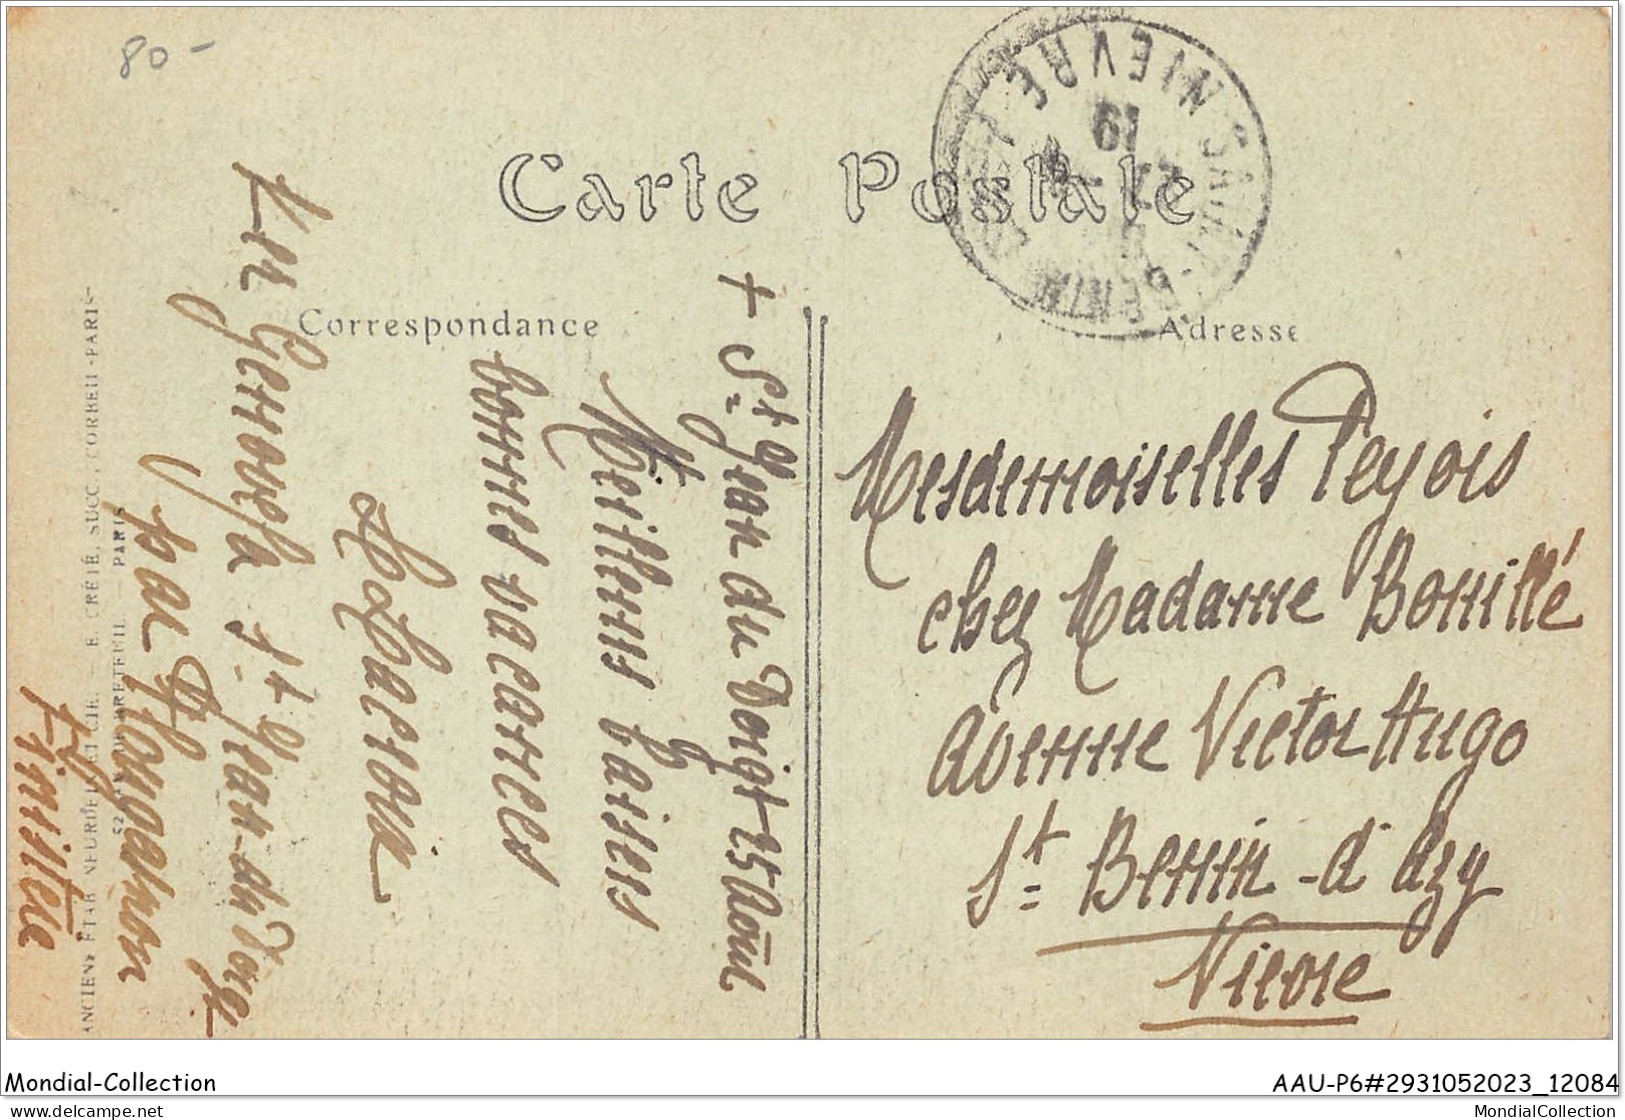 80 -
Carte Postale
SAINT-BENIN D'AZY
NIEVRE
19
Correspondance
Adresse
+ St Jean du Doigt 25 Août
Meilleurs baisers
bonnes vacances
St Jean-du-Doigt
par Plougasnou
Finistère
Mesdemoiselles Peyois
chez Madame Bouillé
Avenue Victor Hugo
St Benin-d'Azy
Nièvre
ANCIENS ETAB. NEURDEIN ET CIE. — E. CRÉTÉ, SUCC., CORBEIL-PARIS
52, AV. DE BRETEUIL. — PARIS
Mondial-Collection
AAU-P6#2931052023_12084
MondialCollection
delcampe.net